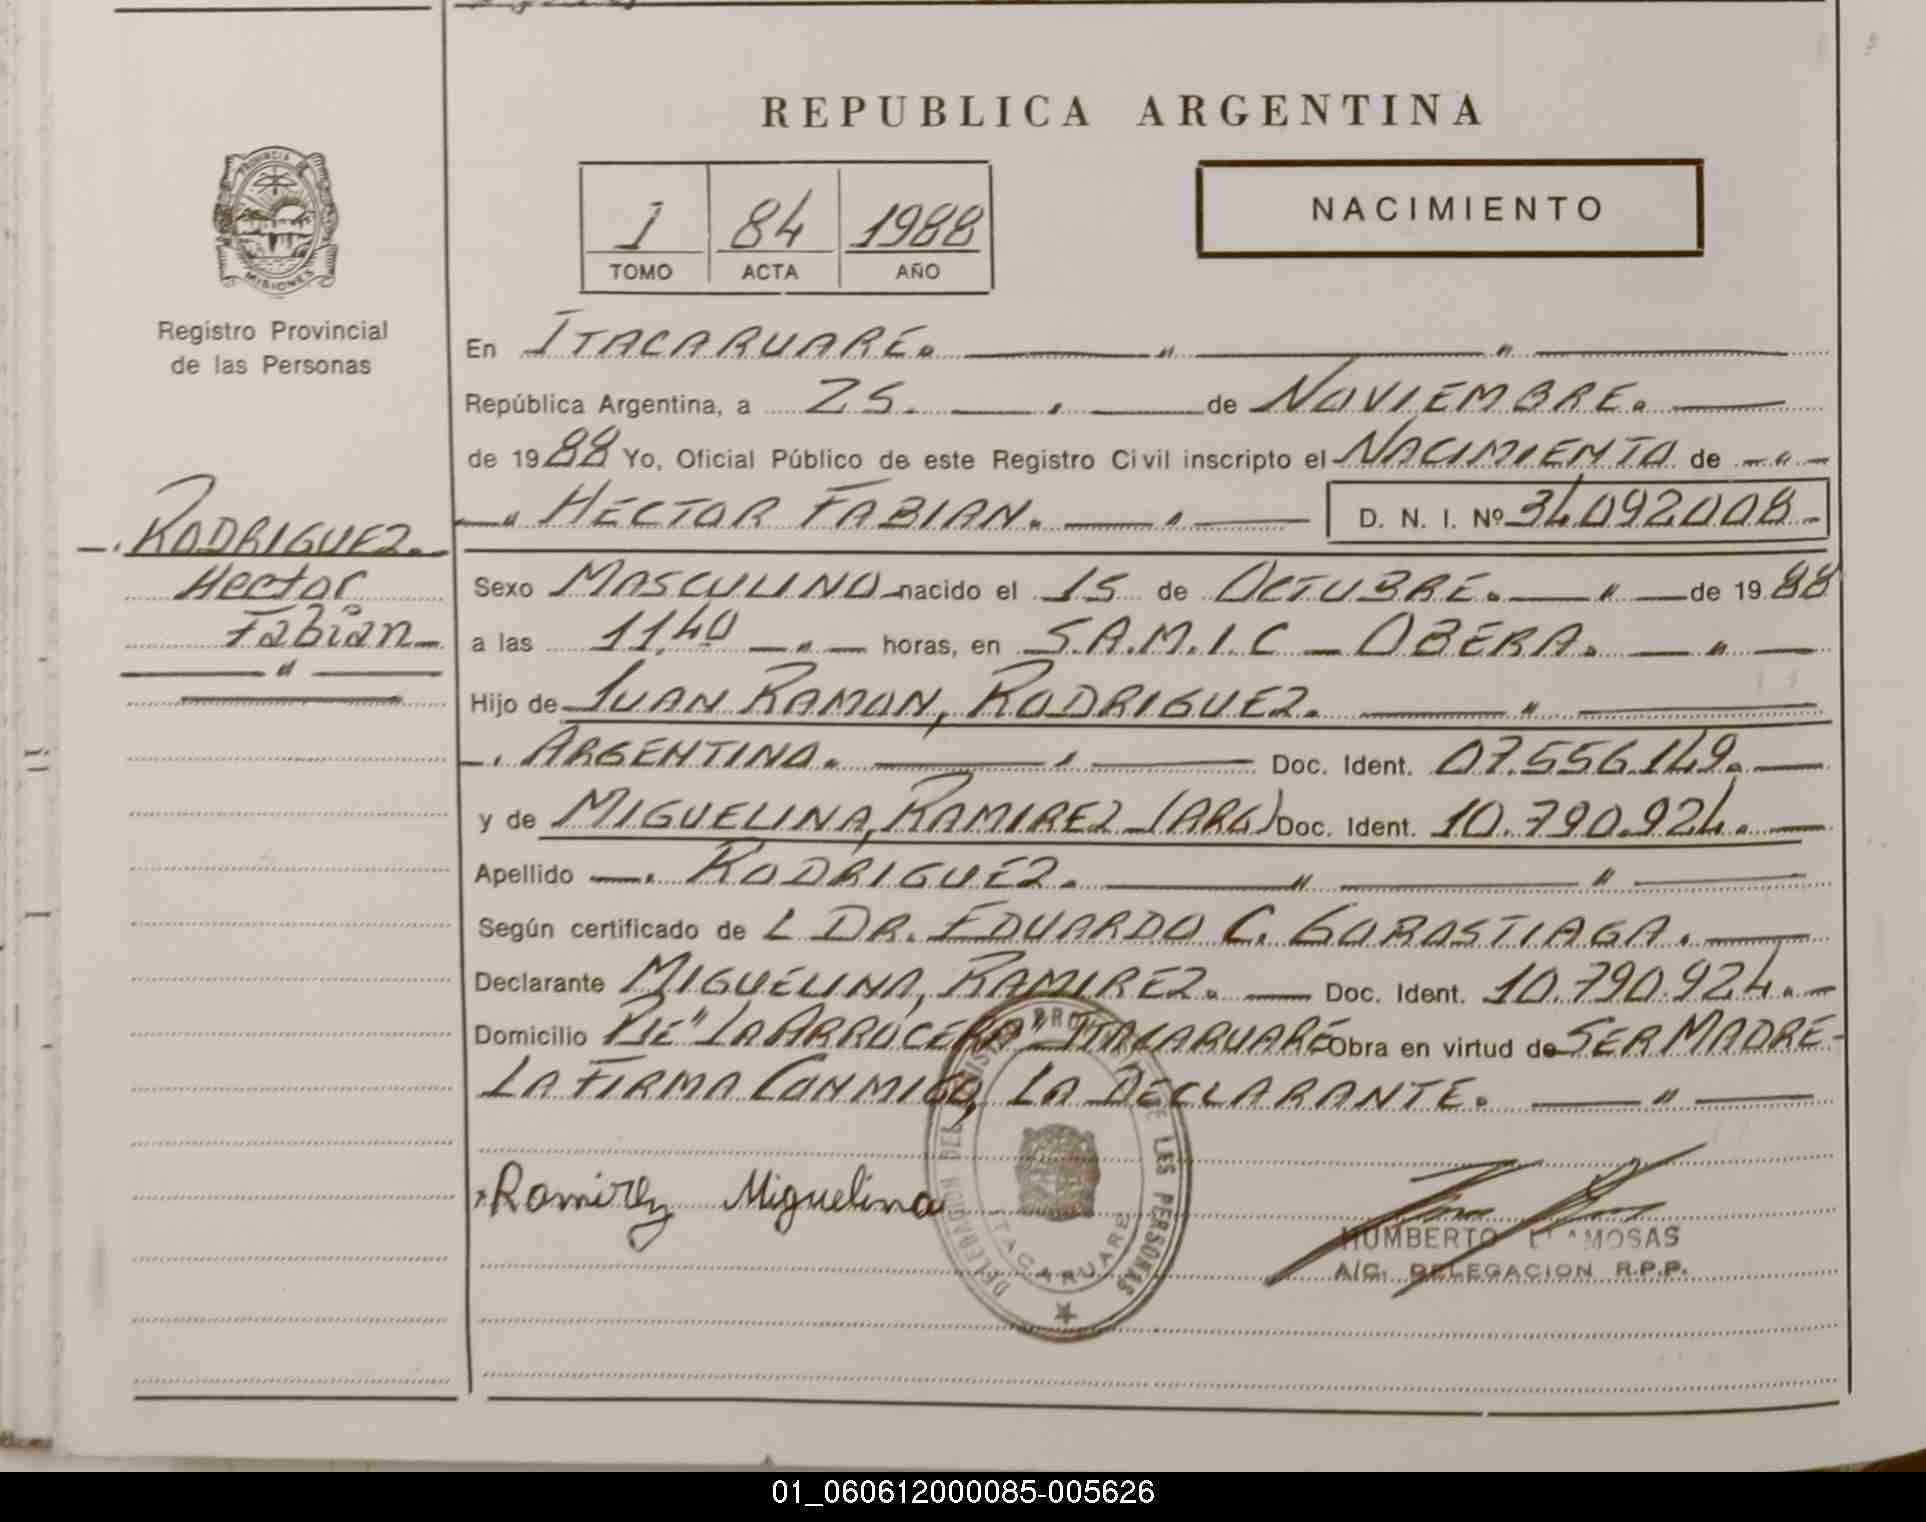 REPUBLICA ARGENTINA
NACIMIENTO
1 84 1988
TOMO ACTA AÑO
PROVINCIA DE MISIONES
Registro Provincial
de las Personas
En ITACARUARÉ. " "
República Argentina, a 25. de NOVIEMBRE.
de 1988 Yo, Oficial Público de este Registro Civil inscripto el NACIMIENTO de "
" HÉCTOR FABIAN. " D. N. I. Nº 34092008
RODRIGUEZ.
Hector
Fabian
"
Sexo MASCULINO nacido el 15 de OCTUBRE. " de 1988
a las 11,40 " horas, en S.A.M.I.C - OBERA. "
Hijo de JUAN RAMON, RODRIGUEZ. "
ARGENTINO. Doc. Ident. 07.556.149.
y de MIGUELINA, RAMIREZ (ARG) Doc. Ident. 10.790.924.
Apellido RODRIGUEZ. " "
Según certificado de L DR. EDUARDO C. GOROSTIAGA.
Declarante MIGUELINA, RAMIREZ. Doc. Ident. 10.790.924.
Domicilio "LA ARROCERA" ITACARUARÉ Obra en virtud de SER MADRE-
LA FIRMA CONMIGO, LA DECLARANTE. "
Ramirez Miguelina
DELEGACION DEL REGISTRO PROVINCIAL DE LES PERSONAS
ITACARUARE
HUMBERTO
A/C. DELEGACION R.P.P.
01_060612000085-005626